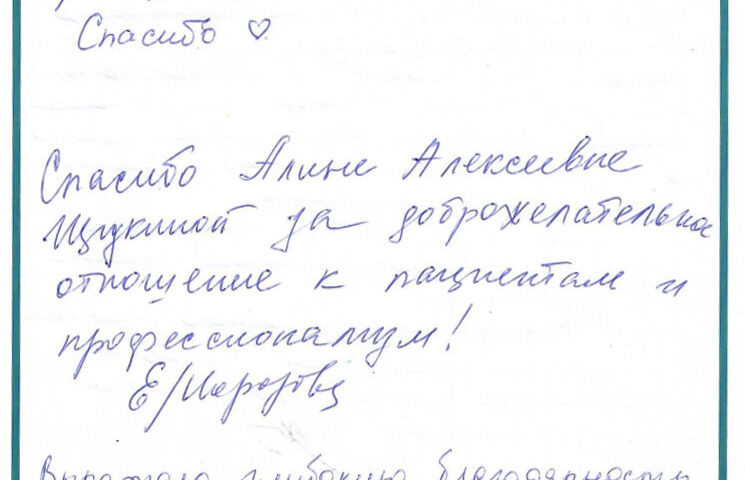 Спасибо ♡
Спасибо Алине Алексеевне
Щукиной за доброжелательное
отношение к пациентам и
профессионализм!
Выражаю глубокую благодарность